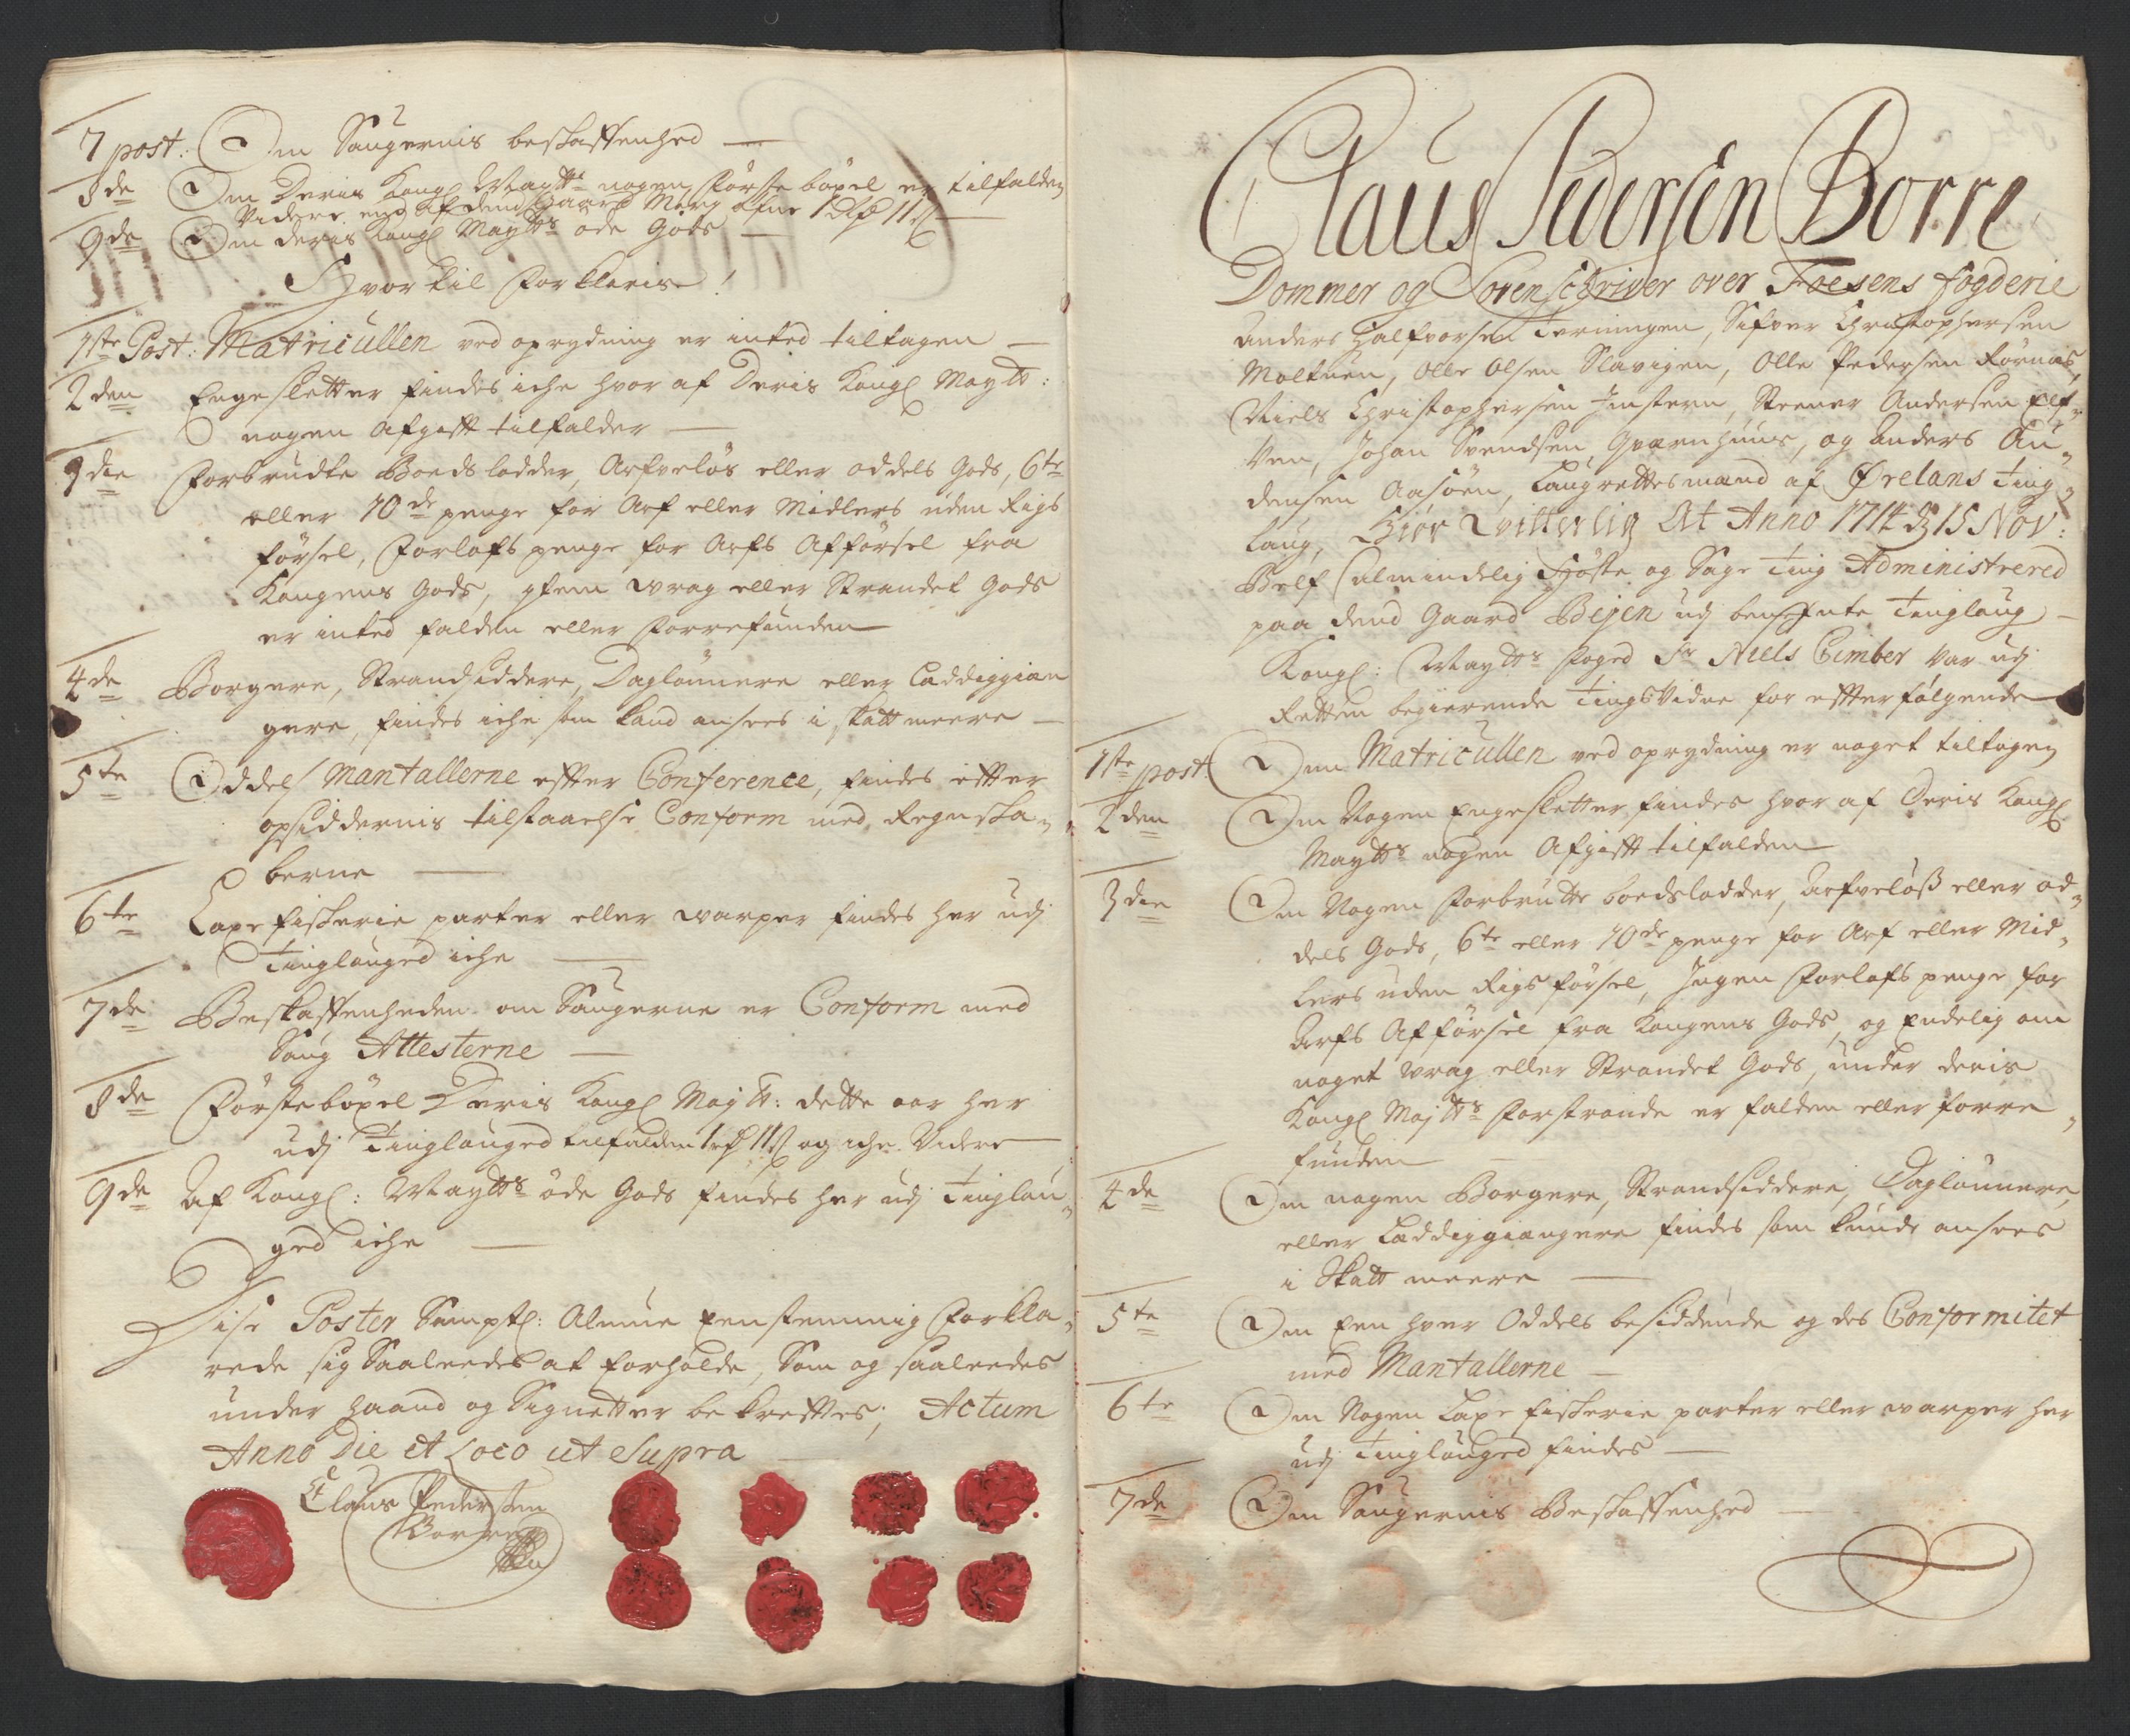 7 post: Om Saugernis beskaffenhed
8de Om Deris Kongl Maytts nogen försteböxel er tilfalden
Videre end af dend Gaard 11
9de Om deris Kongl Maytts öde Gods
Hvor til forklaris!
1ste Post: Matricullen ved oprydning er inted tiltagen
2den Engesletter findes iche hvor af Deris Kongl Maytt:
nogen Afgifft tilfalder
3die Forbrudte Boedslodder, Arfveløs eller oddels Gods, 6te
eller 10de penge for Arf eller Midlers uden Rigs
försel, Forlofs penge for Arfs Afförsel fra
Kongens Gods, item wrag eller Strandet Gods
er inted falden eller forrefunden
4de Borgere, Strandsiddere, Daglönnere eller Læddiggiæn
gere, findes iche som kand ansees i skatt meere
5te Oddels Mantallerne effter Conference, findes effter
opsiddernis tilstaaelse Conform med Regnska-
berne
6te Laxefiskerie parter eller warper findes her udj
Tinglauged iche
7de Beskaffenheden om Saugerne er Conform med
Saug Attesterne
8de Försteböxel Deris Kongl Maytt: dette aar her
udj Tinglauged tilfalden 11 og iche Videre
9de Af Kongl: Maytts öde Gods findes her udj Tinglau-
ged iche
Disse Poster Samptl: Almue Eenstemmig forkla-
rede sig Saaleedes at forholde, Som og saaleedes
under haand og Signetter bekrefftes; Actum
Anno Die et Loco ut Supra
Claus Pedersen
Borre
Claus Pedersen Borre
Dommer og Sorenschriver over Foesens fogderie
Anders Halfvorsen Terningen, Sifver Christophersen
Moltuen, Olle Olsen Slavigen, Olle Pedersen Rörnas,
Niels Christophersen Imstern, Steener Andersen Elf-
ven, Johan Svendsen Gvarnhuus, og Anders An-
densen Aasöen, Laugrettesmænd af Ørelans Ting-
laug, Giör Vitterlig At Anno 1714 d 15 Nov:
Blef almindelig Höste og Sage Ting Administrered
paa dend Gaard Bejen udj bemelte Tinglaug
Kongl: Maytts foged Sr Niels Cimber var udj
Retten begierende Tingsvidne for effterfølgende
1ste post: Om Matricullen ved oprydning er noget tiltagen
2den Om Nogen Engesletter findes hvor af Deris Kongl
Maytts nogen Afgifft tilfalden
3die Om Nogen forbrutte boedslodder, Arfveløß eller od-
dels Gods, 6te eller 10de penge for Arf eller Mid-
lers uden Rigs försel, Ingen Forlofs penge for
Arfs Afförsel fra Kongens Gods, og Endelig om
noget wrag eller Strandet Gods, under deris
Kongl Majtts forstrande er falden eller forre-
funden
4de Om nogen Borgere, Strandsiddere, Daglönnere,
eller Læddiggiængere findes som kunde ansees
i Skatt meere
5te Om Een hver Oddels besiddende og des Conformitet
med Mantallerne
6te Om Nogen Laxe fiskerie parter eller warper her
udj Tinglauged findes
7de Om Saugernis Beskaffenhed